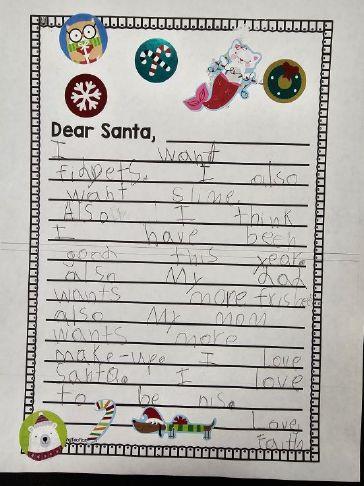 Dear Santa,
I want
fidgets. I also
want slime.
Also I think
I have been
good this year.
also My dad
wants more frisbee
also My mom
wants more
make-up. I love
Santa. I love
to be nis.
Love,
Faith